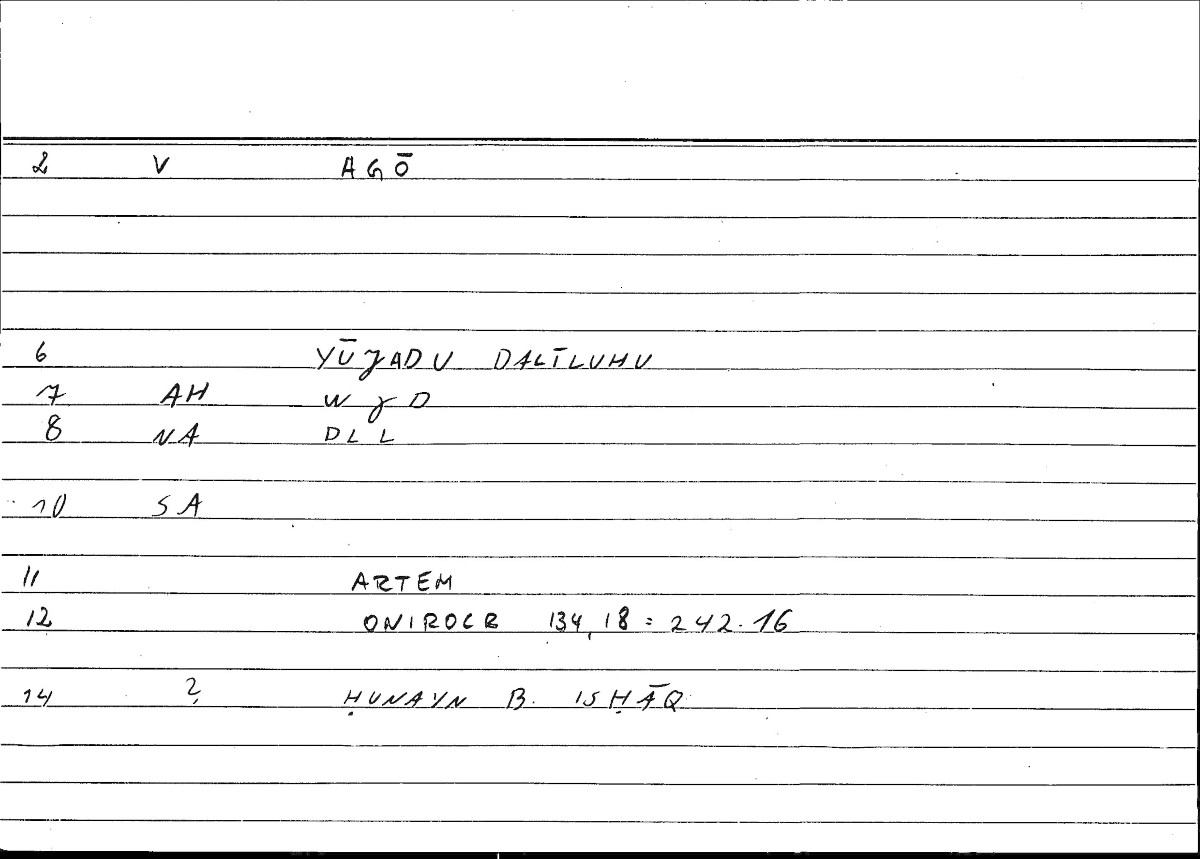 2 V AGŌ
6 YŪJADU DALĪLUHU
7 AH W J D
8 NA DLL
10 SA
11 ARTEM
12 ONIROCR 134,18 = 242.16
14 2, ḤUNAYN B. ISḤĀQ